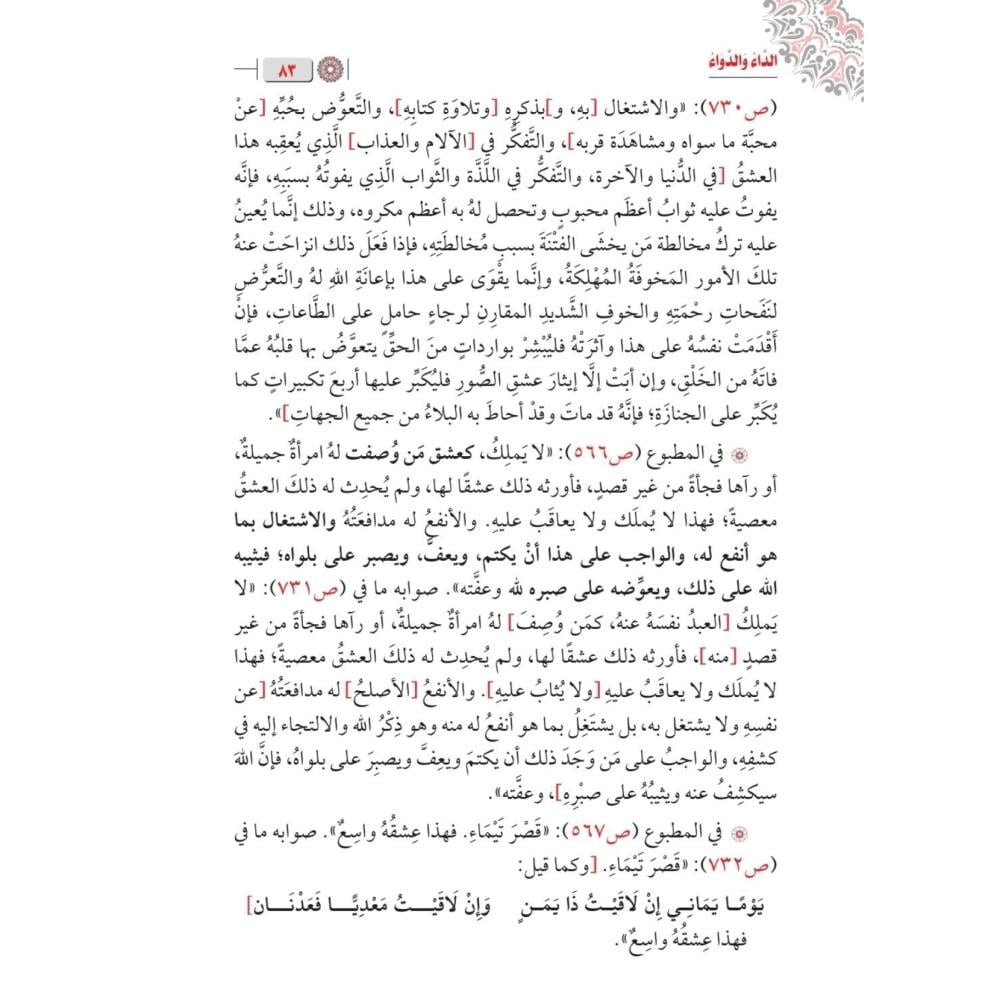 الدَّاءُ وَالدَّوَاءُ
٨٣
(ص٧٣٠): «والاشتغال [بهِ، و]بذكرِهِ [وتلاوَةِ كتابِهِ]، والتَّعوُّض بحُبِّهِ [عنْ
محبَّة ما سواه ومشاهَدَة قربه]، والتَّفكُّر في [الآلام والعذاب] الَّذِي يُعقِبه هذا
العشقُ [في الدُّنيا والآخرة، والتَّفكُّر في اللَّذَّة والثَّواب الَّذِي يفوتُهُ بسببِهِ، فإنَّه
يفوتُ عليه ثوابُ أعظَم محبوبٍ وتحصل لهُ به أعظم مكروه، وذلك إنَّما يُعينُ
عليه تركُ مخالطة مَن يخشَى الفتْنَةَ بسببِ مُخالطَتِهِ، فإذا فَعَلَ ذلك انزاحَتْ عنهُ
تلكَ الأمور المَخوفَةُ المُهْلِكَةُ، وإنَّما يقْوَى على هذا بإعانَةِ اللهِ لهُ والتَّعرُّضِ
لنَفَحاتِ رحْمَتِهِ والخوفِ الشَّديدِ المقارِنِ لرجاءٍ حاملٍ على الطَّاعاتِ، فإنْ
أَقْدَمَتْ نفسُهُ على هذا وآثرَتْهُ فليُبْشِرْ بوارداتٍ منَ الحقِّ يتعوَّضُ بها قلبُهُ عمَّا
فاتَهُ من الخَلْقِ، وإن أبَتْ إلَّا إيثارَ عشقِ الصُّورِ فليُكَبِّر عليها أربعَ تكبيراتٍ كما
يُكَبِّر على الجنازَةِ؛ فإنَّهُ قد ماتَ وقدْ أحاطَ به البلاءُ من جميع الجهاتِ]».
في المطبوع (ص٥٦٦): «لا يَملِكُ، كعشق مَن وُصفت لهُ امرأةٌ جميلةٌ،
أو رآها فجأةً من غير قصدٍ، فأورثه ذلك عشقًا لها، ولم يُحدِث له ذلكَ العشقُ
معصيةً؛ فهذا لا يُملَك ولا يعاقَبُ عليهِ. والأنفعُ له مدافعَتُهُ والاشتغال بما
هو أنفع له، والواجب على هذا أنْ يكتم، ويعفَّ، ويصبر على بلواه؛ فيثيبه
الله على ذلك، ويعوِّضه على صبره لله وعفَّته». صوابه ما في (ص٧٣١): «لا
يَملِكُ [العبدُ نفسَهُ عنهُ، كمَن وُصِفَ] لهُ امرأةٌ جميلةٌ، أو رآها فجأةً من غير
قصدٍ [منه]، فأورثه ذلك عشقًا لها، ولم يُحدِث له ذلكَ العشقُ معصيةً؛ فهذا
لا يُملَك ولا يعاقَبُ عليهِ [ولا يُثابُ عليهِ]. والأنفعُ [الأصلحُ] له مدافعَتُهُ [عن
نفسِهِ ولا يشتغل به، بل يشتَغِلُ بما هو أنفعُ له منه وهو ذِكْرُ الله والالتجاء إليه في
كشفِهِ، والواجبُ على مَن وَجَدَ ذلك أن يكتمَ ويعِفَّ ويصبِرَ على بلواهُ، فإنَّ اللهَ
سيكشِفُ عنه ويثيبُهُ على صبْرِهِ]، وعفَّته».
في المطبوع (ص٥٦٧): «قَصْرَ تَيْمَاءِ. فهذا عِشقُهُ واسِعٌ». صوابه ما في
(ص٧٣٢): «قَصْرَ تَيْمَاءِ. [وكما قيل:
يَوْمًـا يَمَانِـي إِنْ لَاقَيْـتُ ذَا يَمَـنٍ وَإِنْ لَاقَيْـــتُ مَعْدِيًّـــا فَعَدْنَـــان]
فهذا عِشقُهُ واسِعٌ».